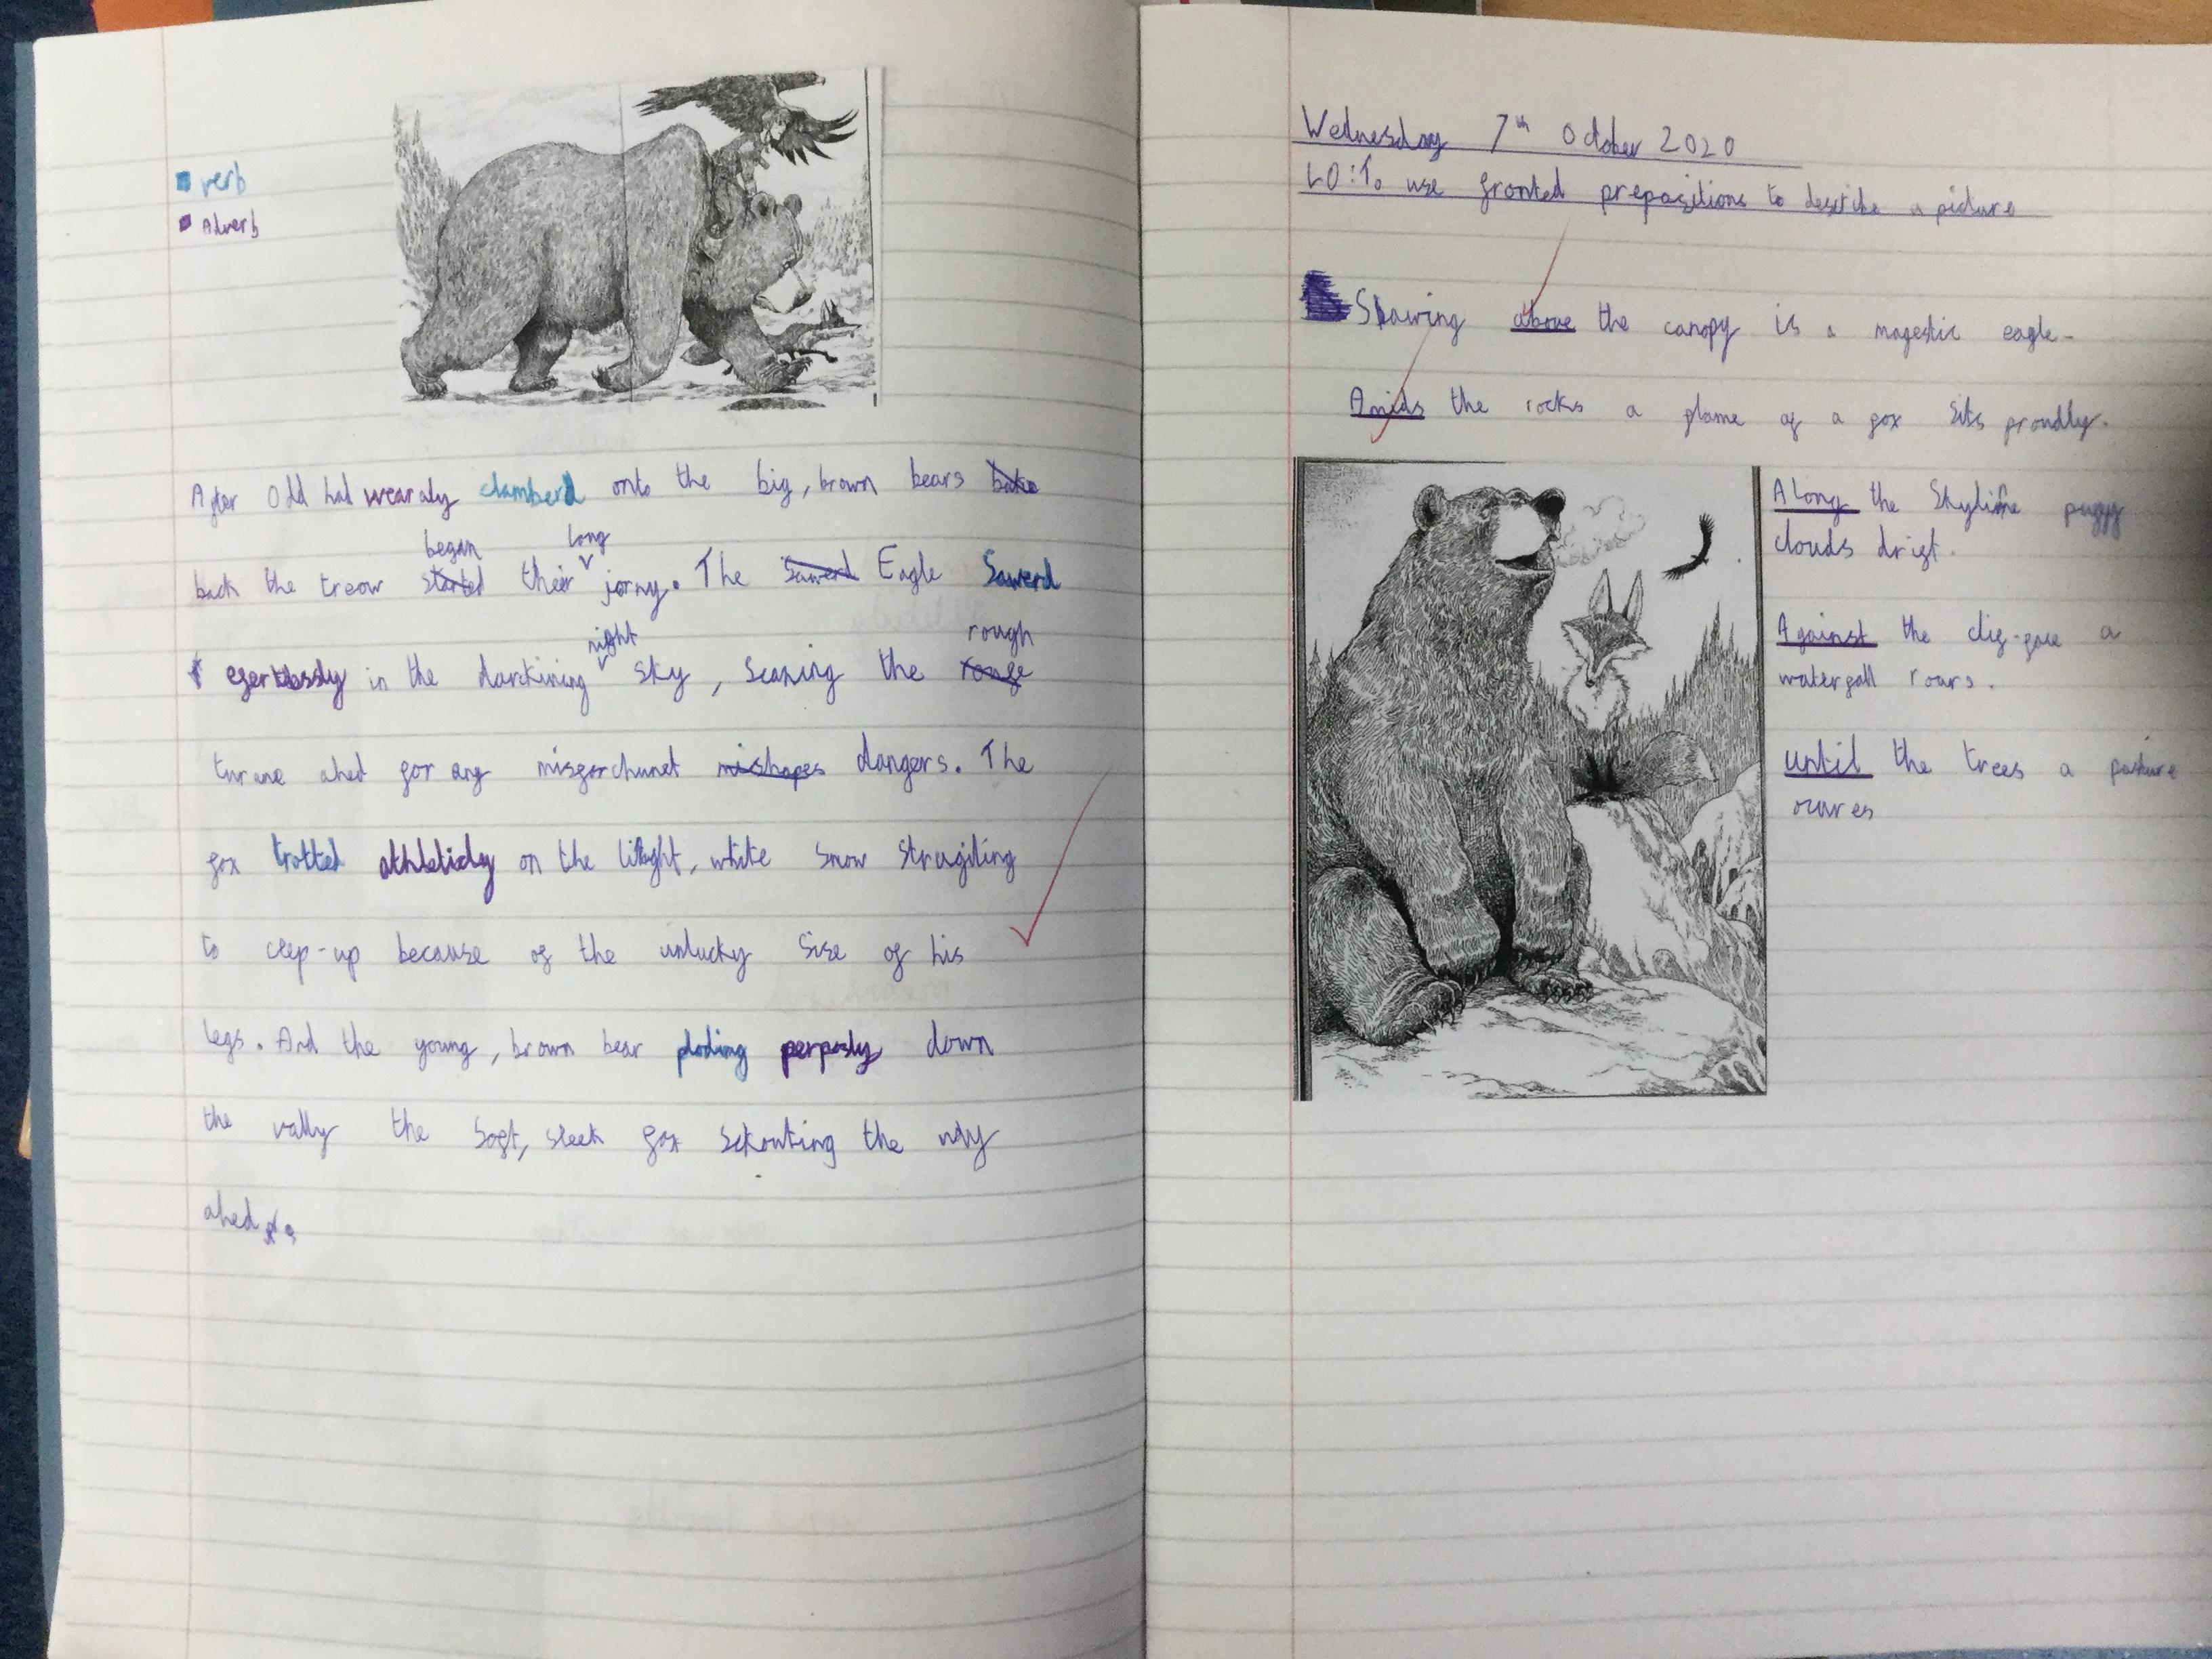 verb
Adverb
After Odd had wearaly clamberd onto the big, brown bears bake
began long
back the treow started their jorny. The Sawerd Eagle Sawerd
night rough
efertlessly in the darckining sky, Scaning the rouge
turane ahed for any misforchunet mishapes dangers. The
fox trotted athleticly on the light, white snow strugiling
to ceep-up because of the unlucky Sise of his
legs. And the young, brown bear ploding perposly down
the vally the Soft, sleek fox sckouting the way
ahed.
Wednesday 7th October 2020
LO: To use fronted prepositions to describe a picture
Skawring above the canopy is a magestic eagle.
Amids the rocks a flame of a fox sits proudly.
Along the Skyline puffy
clouds drift.
Against the clif-face a
waterfall roars.
until the trees a pasture